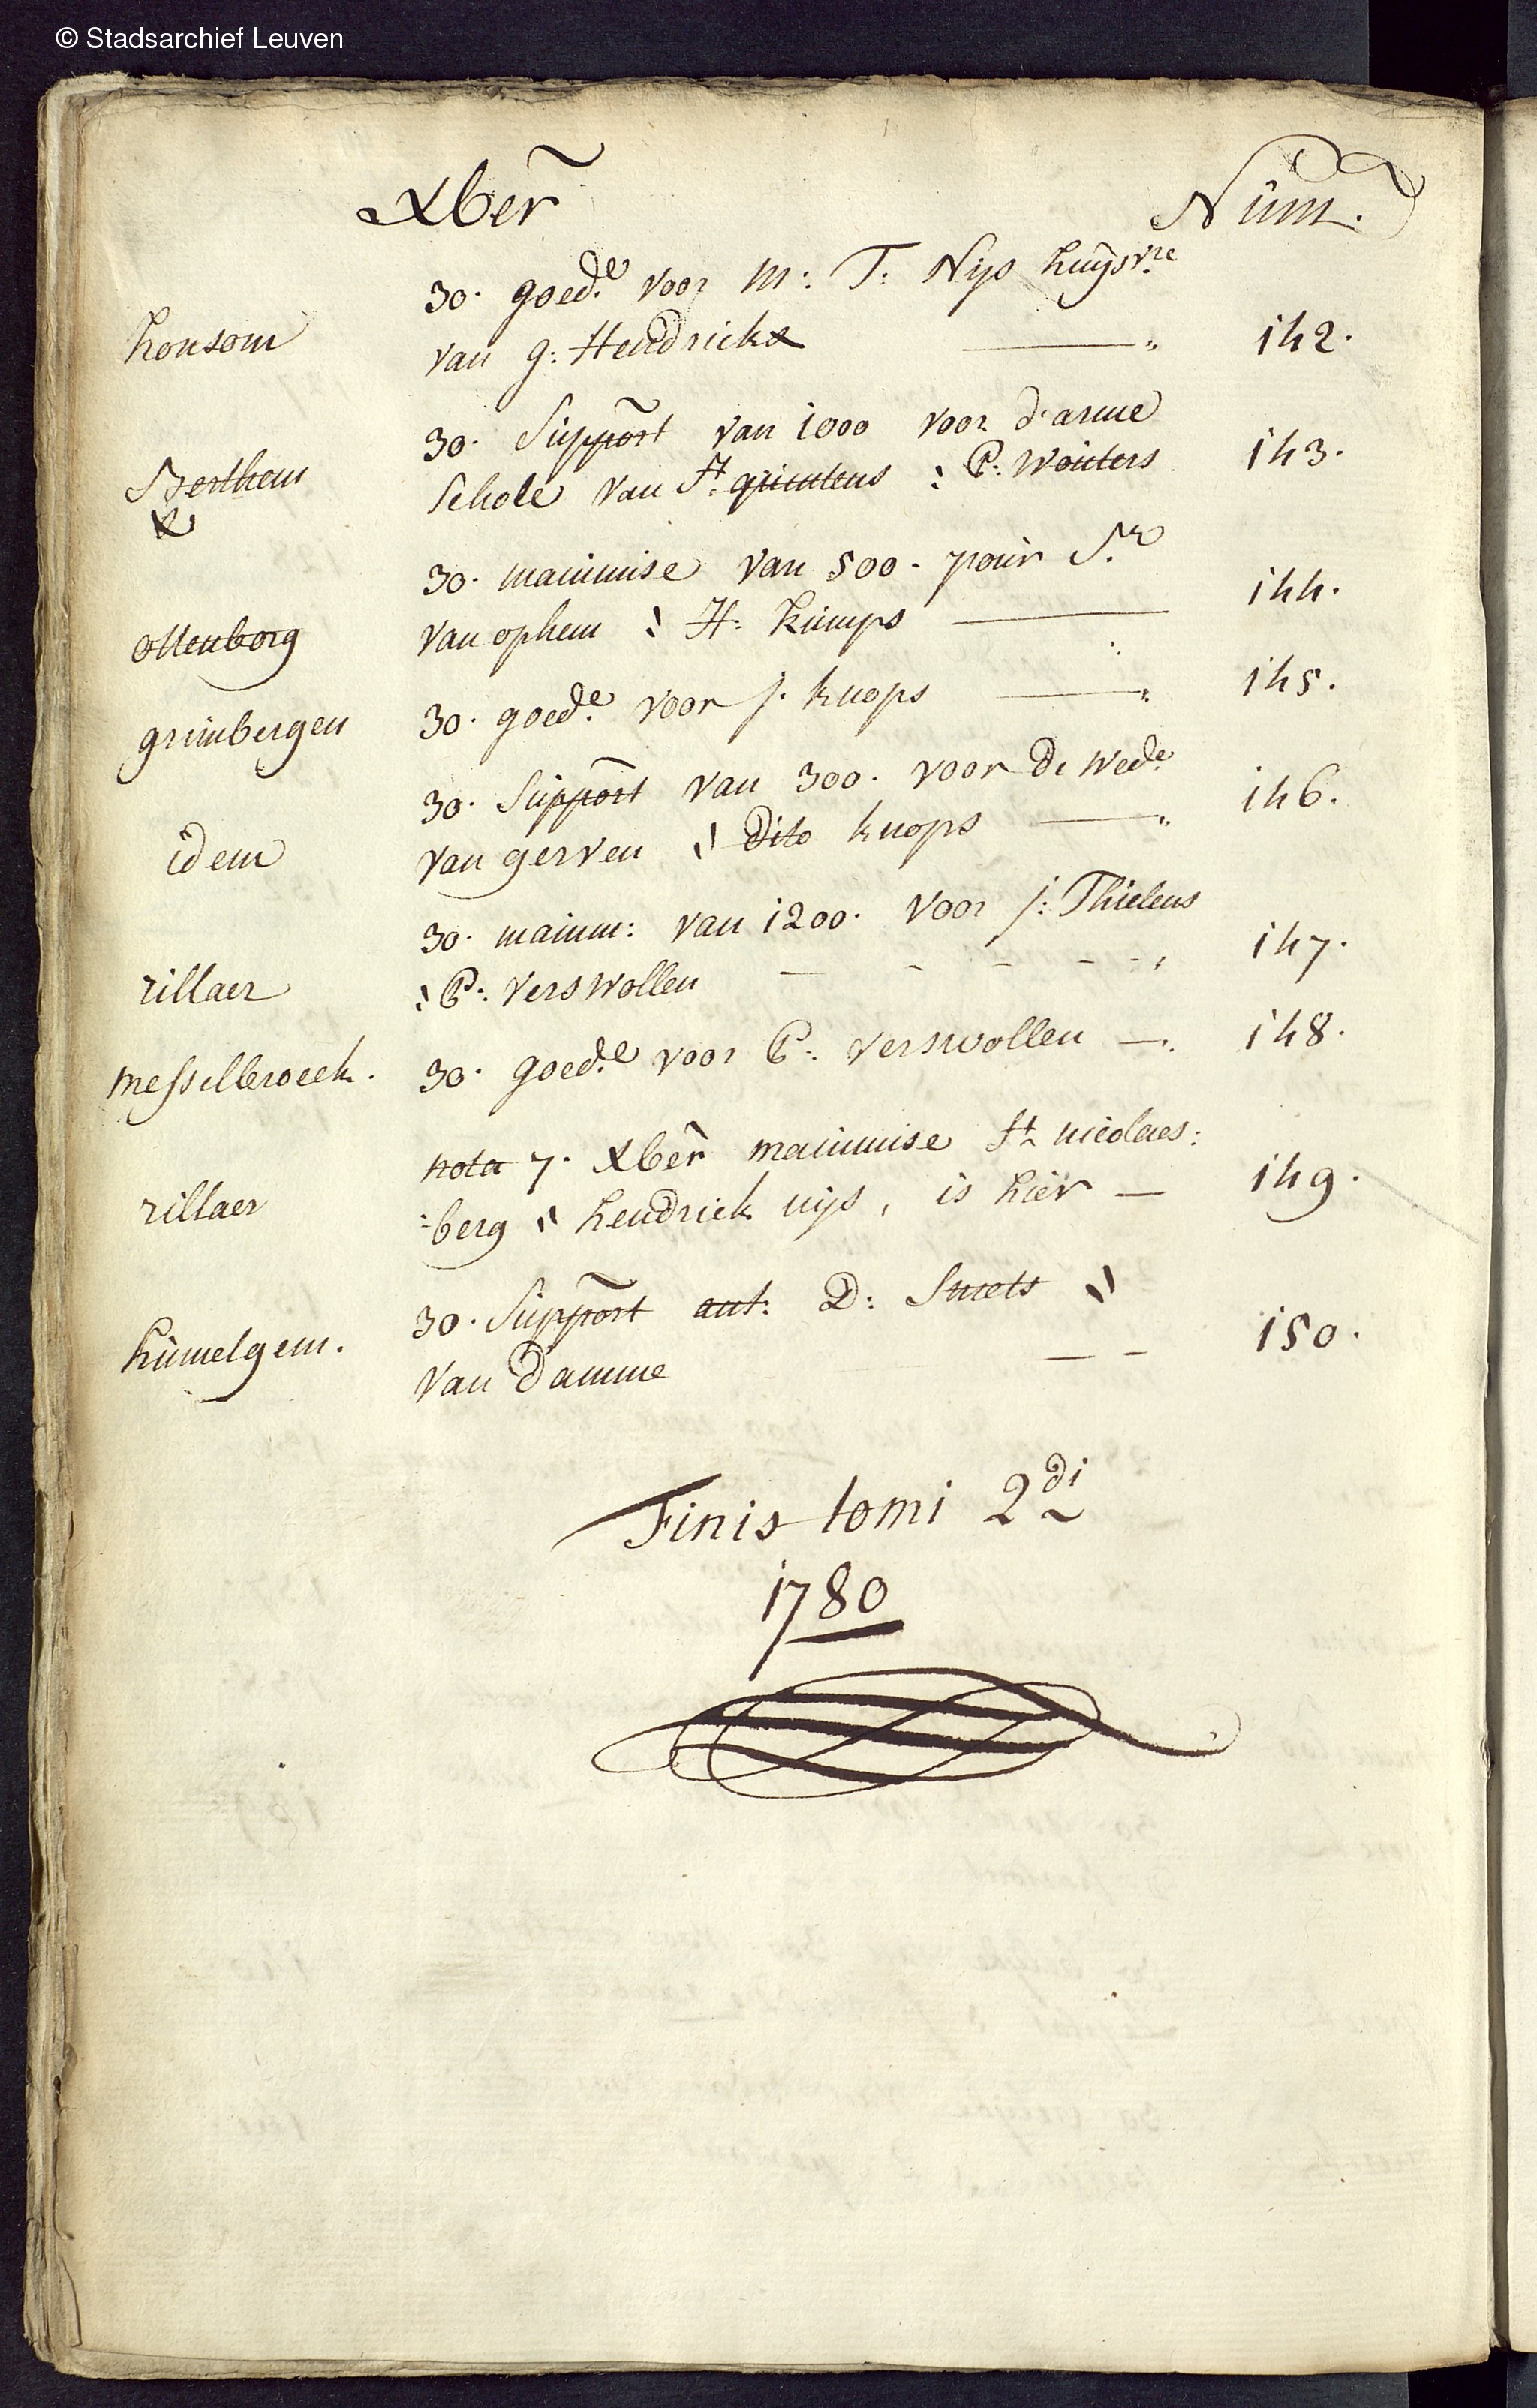 © Stadsarchief Leuven
Xber̃ Num.
30. goed.e voor M: T: Nijs huijsvre
honsom van g: Hendrickx — „ 142.
30. Suppõrt van 1000 voor d'arme
Berthem schole van St. quintens : P: Wouters 143.
&
30. mainmise van 500. pour S.r
ottenborg van ophem : H: Kumps — 144.
grimbergen 30. goed.e voor j. knops — „ 145.
30. Suppõrt van 300. voor de Wed.e
idem van gerven „ dito knops — „ 146.
30. mainm: van 1200. voor j: Thielens
rillaer : P: Verswollen - - - - - 147.
messelbroeck. 30. goed.e voor P: Verswollen —. 148.
nota 7. Xber̃ mainmise St. nicolaes:
rillaer :berg „ hendrick nijs, is hier — 149.
30. Suppõrt ant: D: Smets „
humelgem. van Damme — - 150.
Finis tomi 2di
1780